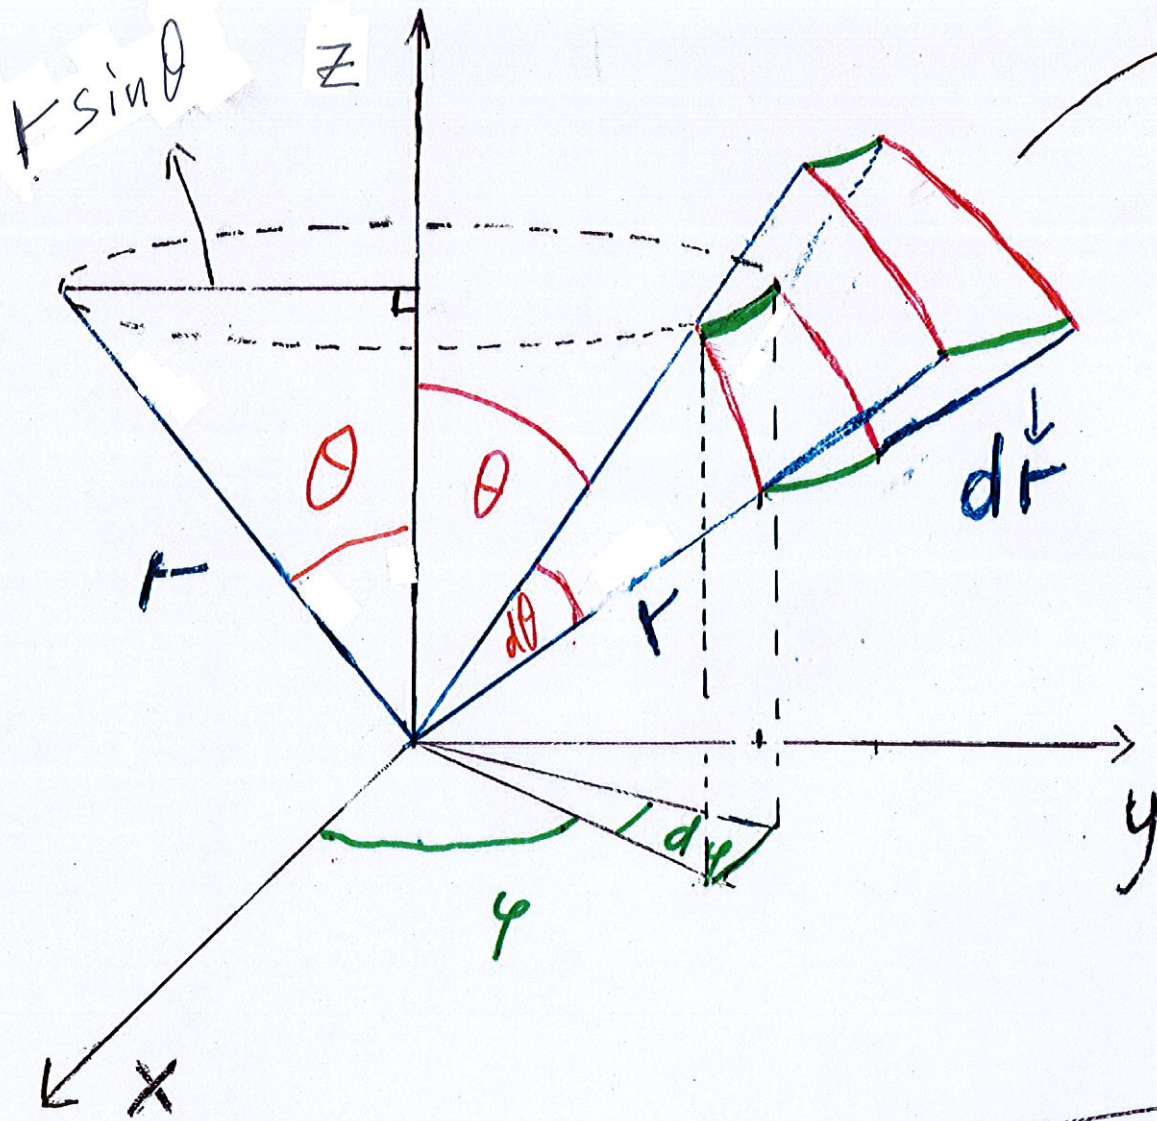 r sinθ
z
θ
θ
r
dθ
r
dr
y
dφ
φ
x